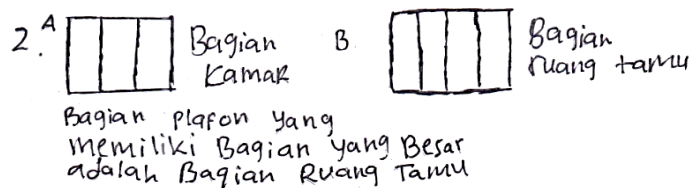 2. A Bagian B Bagian
Kamar ruang tamu
Bagian plafon yang
memiliki Bagian yang Besar
adalah Bagian Ruang Tamu